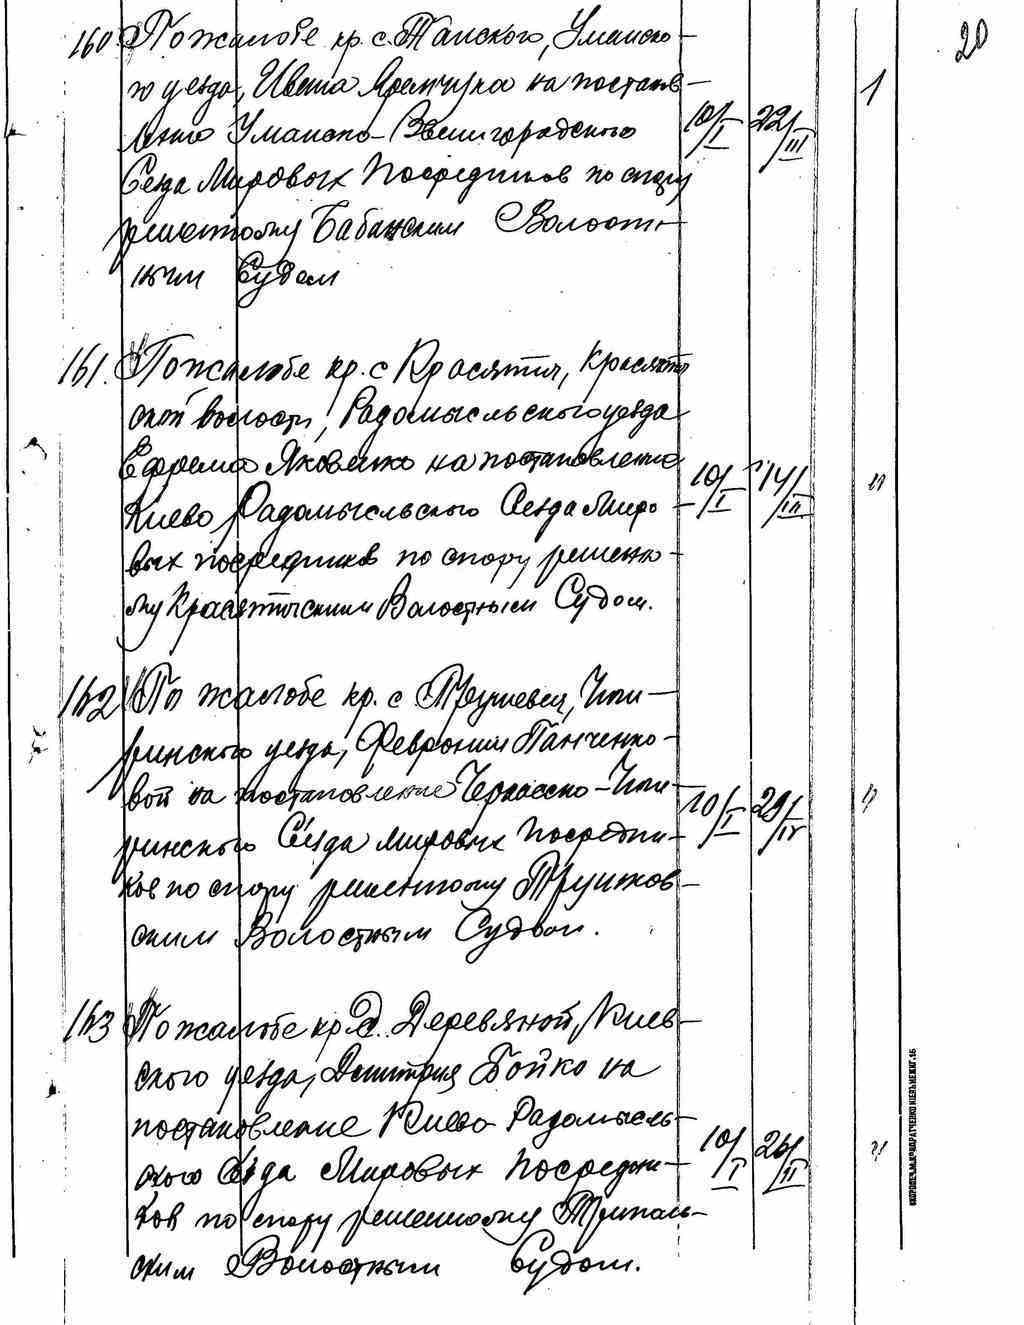 20
160. По жалобе кр. с. Танского, Уманско-
го уезда, Ивана Яремчука на постанов-
1
ление Уманско-Звенигородского 10/I 22/III
Сезда Мировых Посредников по спору
решенному Бабанским Волост-
ным Судом
161. По жалобе кр. с Красятич, Красятич
ской волости, Радомысльского уезда
Ефрема Яковенко на постановление
Киево Радомысльского Сезда Миро- 10/I 14/III "
вых посредников по спору решенно-
му Красятычским Волостным Судом.
162 По жалобе кр. с Трушевец, Чиги-
ринского уезда, Февронии Панченко-
вой на постановление Черкасско-Чиги- 10/I 29/IV "
ринского Сезда мировых Посредни-
ков по спору решенному Трушков-
ским Волостным Судом.
163 По жалобе кр. д. Деревяной, Киев-
ского уезда, Дмитрия Бойко на
постановление Киево Радомысль-
ского Сезда Мировых Посредни- 10/I 26/II "
ков по спору решенному Триполь-
ским Волостным Судом.